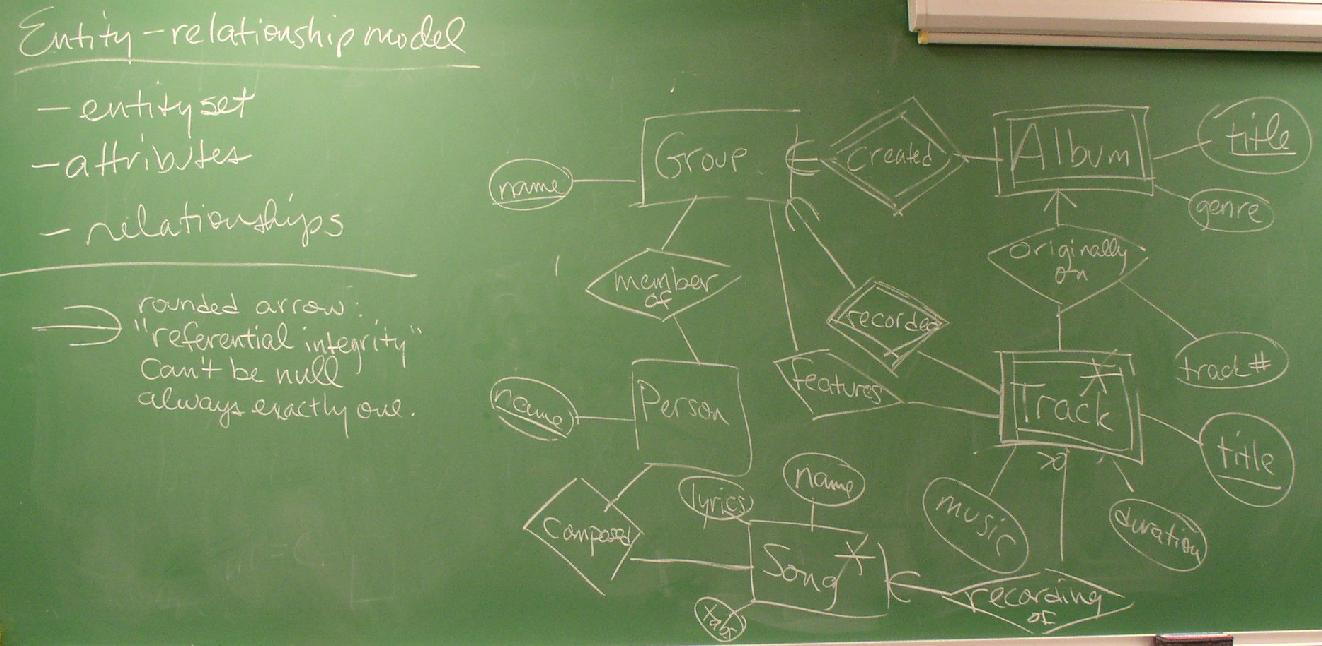 Entity-relationship model
- entity set
- attributes
- relationships
rounded arrow:
"referential integrity"
can't be null
always exactly one.
Group
created
Album
title
name
genre
member
of
originally
on
recorded
track #
features
Track
name
Person
title
name
lyrics
music
duration
Composed
Song
recording
of
tabs